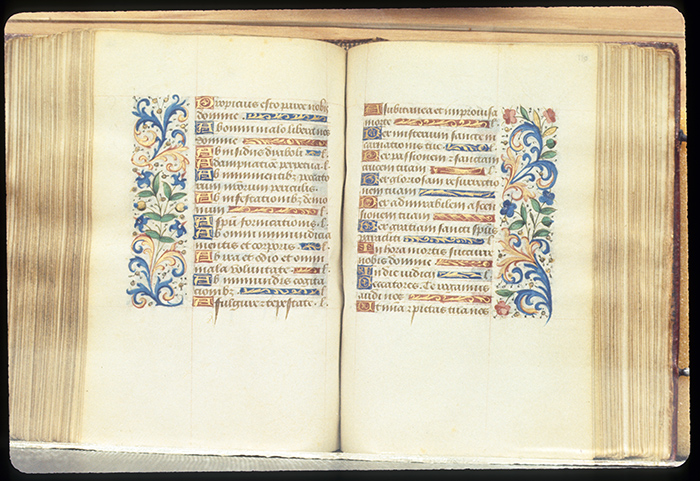 Propicius esto parce nobis
domine.
Ab omni malo libera nos
domine.
Ab insidiis diaboli. l.
A dampnatiõe perpetua. l.
Ab imminentibz peccato
rum nrorum periculis.
Ab infestationibz demo
num
A spũ fornicationis. l.
Ab omni immundicia
mentis et corporis l.
Ab ira et odio et omni
mala voluntate. l.
Ab immundis cogita
tionibz. l.
A fulgure et tẽpestate. l.
A subitanea et improuisa
morte l.
Per misterium sancte in
carnationis tue l.
Per passionem et sanctam
crucem tuam l.
Per gloriosam resurrectio
nem tuam l.
Per admirabilem ascen
sionem tuam l.
Per gratiam sancti spũs
paracliti l.
In hora mortis succurre
nobis domine l.
In die iudicii l.
Peccatores. Te rogamus
audi nos
Ut mia et pietas tua nos